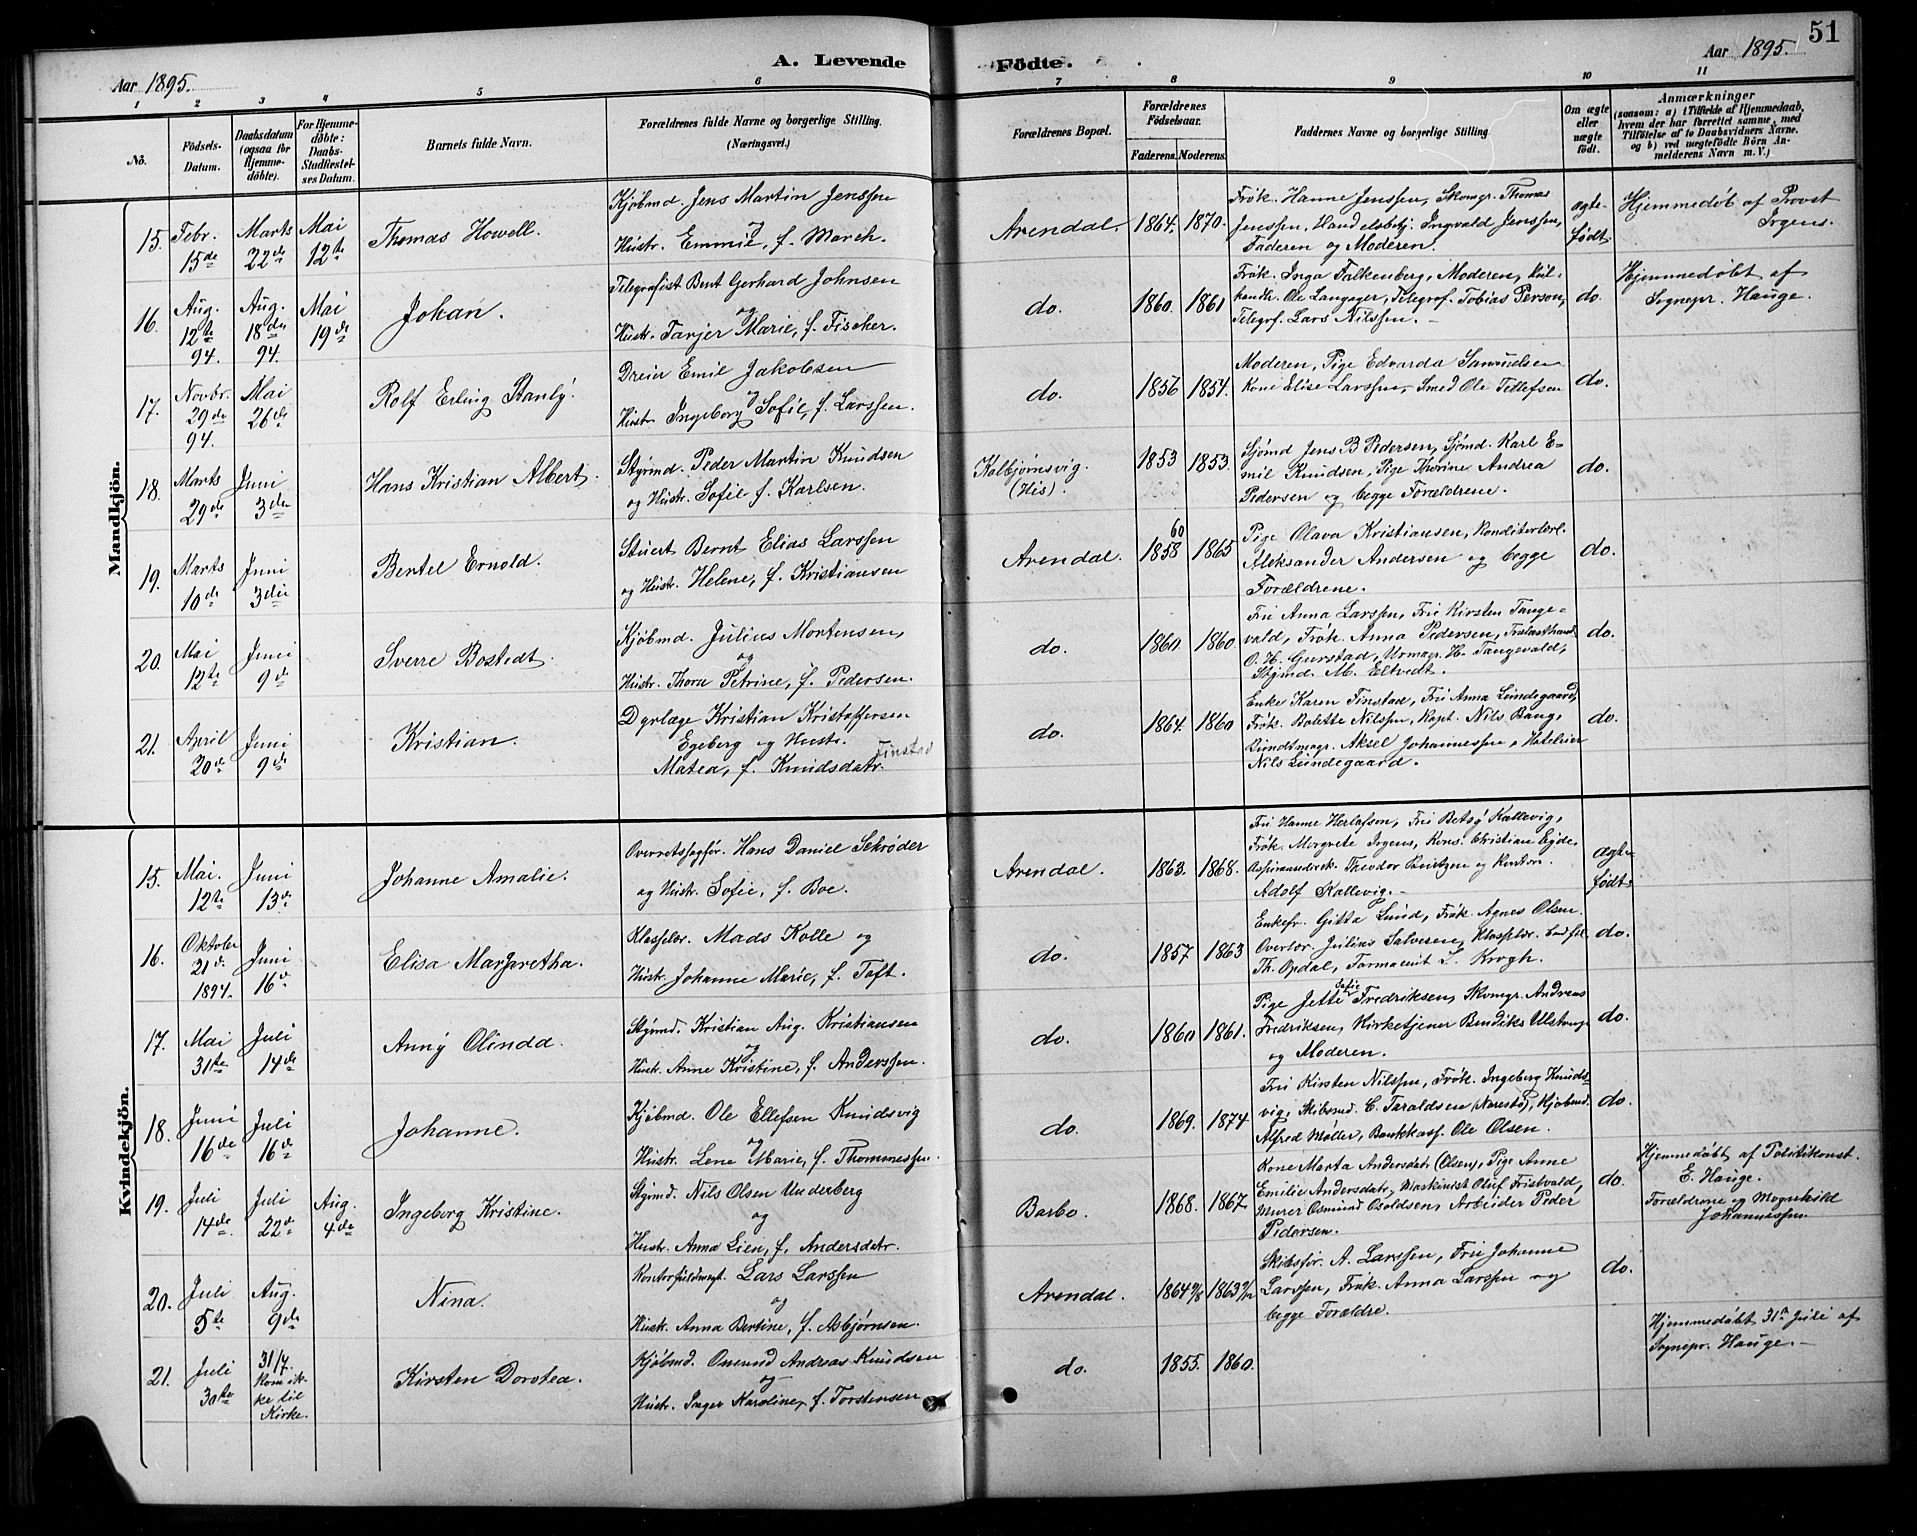 51
Aar 1895.
A. Levende Fødte.
Aar 1895.
1 2 3 4 5 6 7 8 9 10 11
No.
Fødsels-Datum.
Daabsdatum (ogsaa for Hjemmedøbte).
For Hjemmedøbte: Daabs-Stadfæstelses Datum.
Barnets fulde Navn.
Forældrenes fulde Navne og borgerlige Stilling.
(Næringsvei.)
Forældrenes Bopæl.
Forældrenes Fødselsaar.
Faderens. Moderens.
Faddernes Navne og borgerlige Stilling.
Om ægte eller uægte født.
Anmærkninger
(saasom: a) i Tilfælde af Hjemmedaab, hvem der har forrettet samme, med Tilføielse af to Daabsvidners Navne. og b) ved uægtefødte Børn Anmelderens Navn m. V.)
Mandkjøn.
15. Febr. 15de
Marts 22de
Mai 12te
Thomas Howell.
Kjøbmd. Jens Martin Jenssen
og
Hustr. Emmie, f. March.
Arendal. 1864. 1870.
Frøk. Hanne Jenssen, Skomgr. Thomas
Jenssen, Handelsbtj. Ingvald Jenssen,
Faderen og Moderen.
ægte-født.
Hjemmedøb af Provst
Irgens.
16. Aug. 12te 94.
Aug. 18de 94.
Mai 19de
Johan.
Telegrafist Bent Gerhard Johnsen
og
Hustr. Tarjer Marie, f. Fischer.
do. 1860. 1861
Frøk. Inga Falkenberg, Moderen, Kulhandlr. Ole Langager, Telegrf. Tobias Person,
Telegrf. Lars Nilssen.
do.
Hjemmedøbt af
Sognepr. Hauge.
17. Novbr. 29de 94.
Mai 26de
Rolf Erling Stanly.
Dreier Emil Jakobsen
og
Hustr. Ingeborg Sofie, f. Larssen.
do. 1856 1854.
Moderen, Pige Edvarda Samuelsen
Kone Elise Larssen, Smed Ole Tellefsen
do.
18. Marts 29de
Juni 3die
Hans Kristian Albert.
Styrmd. Peder Martin Knudsen
og Hustr. Sofie f. Karlsen.
Kolbjørnsvig. (His).
1853 1853.
Sjømd Jens B Pedersen, Sjømd. Karl E-
mil Knudsen, Pige Thorine Andrea
Pedersen og begge Forældrene.
do.
19. Marts 10de
Juni 3die
Bertel Ernold.
Stuert Bernt Elias Larssen
og Hustr. Helene, f. Kristiansen
Arendal. 60
1858 1865
Pige Olava Kristiansen, Konditorlærl.
Aleksander Andersen og begge
Forældrene.
do.
20. Mai 12te
Juni 9de
Sverre Bostedt.
Kjøbmd. Julius Mortensen,
og
Hustr. Thora Petrine, f. Pedersen.
do. 1860. 1860.
Fru Anna Larssen, Fru Kirsten Tange-
vald, Frøk. Anna Pedersen,
O. H. Gurstad, Urmagr. H. Tangevald,
Styrmd. M. Eltvedt.
do.
21. April 20de
Juni 9de
Kristian.
Dyrlæge Kristian Kristoffersen
Egeberg og Hustr.
Matea, f. Knudsdatr. Finstad
do. 1864. 1860
Enke Karen Finstad, Fru Anna Lundegaard,
Frøk. Bolette Nilssen, Kapt. Nils Bang,
Bundtmagr. Aksel Johannessen, Hoteleier
Nils Lundegaard.
do.
Kvindekjøn.
15. Mai. 12te
Juni 13de
Johanne Amalie.
Overretssagfør. Hans Daniel Schrøder
og Hustr. Sofie, f. Boe.
Arendal. 1863. 1868.
Fru Hanne Herlofson, Fru Betsy Kallevig,
Frøk. Margrete Irgens, Kons. Christian Eyde,
Theodor Bentzen og Kontori.
Adolf Kallevig.
ægte-født.
16. Oktober 21de 1894.
Juni 16de
Elisa Margretha.
Klasselær. Mads Kolle og
Hustr. Johanne Marie, f. Toft.
do. 1857 1863
Enkefr. Gitta Lund, Frøk. Agnes Olsen.
Overlær. Julius Salvesen, Klasselær.
Th. Opdal, Farmaceut L. Krogh.
do.
17. Mai 31te
Juli 14de
Anny Olinda.
Styrmd. Kristian Aug. Kristiansen
og
Hustr. Anne Kristine, f. Anderssen.
do. 1860 1861.
Pige Jette Sofie Fredriksen, Skomgr. Andreas
Fredriksen, Kirketjener Bendiks Ulstrup
og Moderen.
do.
18. Juni 16de
Juli 16de
Johanne.
Kjøbmd. Ole Ellefsen Knudsvig
og
Hustr. Lene Marie, f. Thommessen.
do. 1869. 1874
Fru Kirsten Nilssen, Frøk. Ingeborg Knuds-
vig, Skibsmd. C. Taraldsen (Narestø), Kjøbmd.
Alfred Møller, Bankkass. Ole Olsen.
do.
19. Juli 14de.
Juli 22de
Aug. 4de
Ingeborg Kristine.
Styrmd. Nils Olsen Underberg
og
Hustr. Anna Lien, f. Andersdatr.
Barbo. 1868. 1867.
Kone Marta Andersdatr. (Olsen), Pige Anne
Emilie Andersdatr., Maskinist Oluf Fristvald,
Murer Osmund Osoldsen, Arbeider Peder
Pedersen.
do.
Hjemmedøbt af Politikonst.
E. Hauge.
Forældrene og Magnhild
Johannessen.
20. Juli 5te
Aug. 9de
Nina.
Kontorfuldmegt. Lars Larssen
og
Hustr. Anna Bertine, f. Asbjørnsen.
Arendal. 1864 9/8 1863 9/12
Skibsfør. A. Larssen, Fru Johanne
Larssen, Frøk. Anna Larssen og
begge Forældre.
do.
21. Juli 30te
31/7.
Kom ik-
ke til
Kirke.
Kirsten Dorotea.
Kjøbmd. Omund Andreas Knudsen
og
Hustr. Inger Karoline, f. Torstensen
do. 1855. 1860.
Hjemmedøbt 31te Juli af
Sognepr. Hauge.